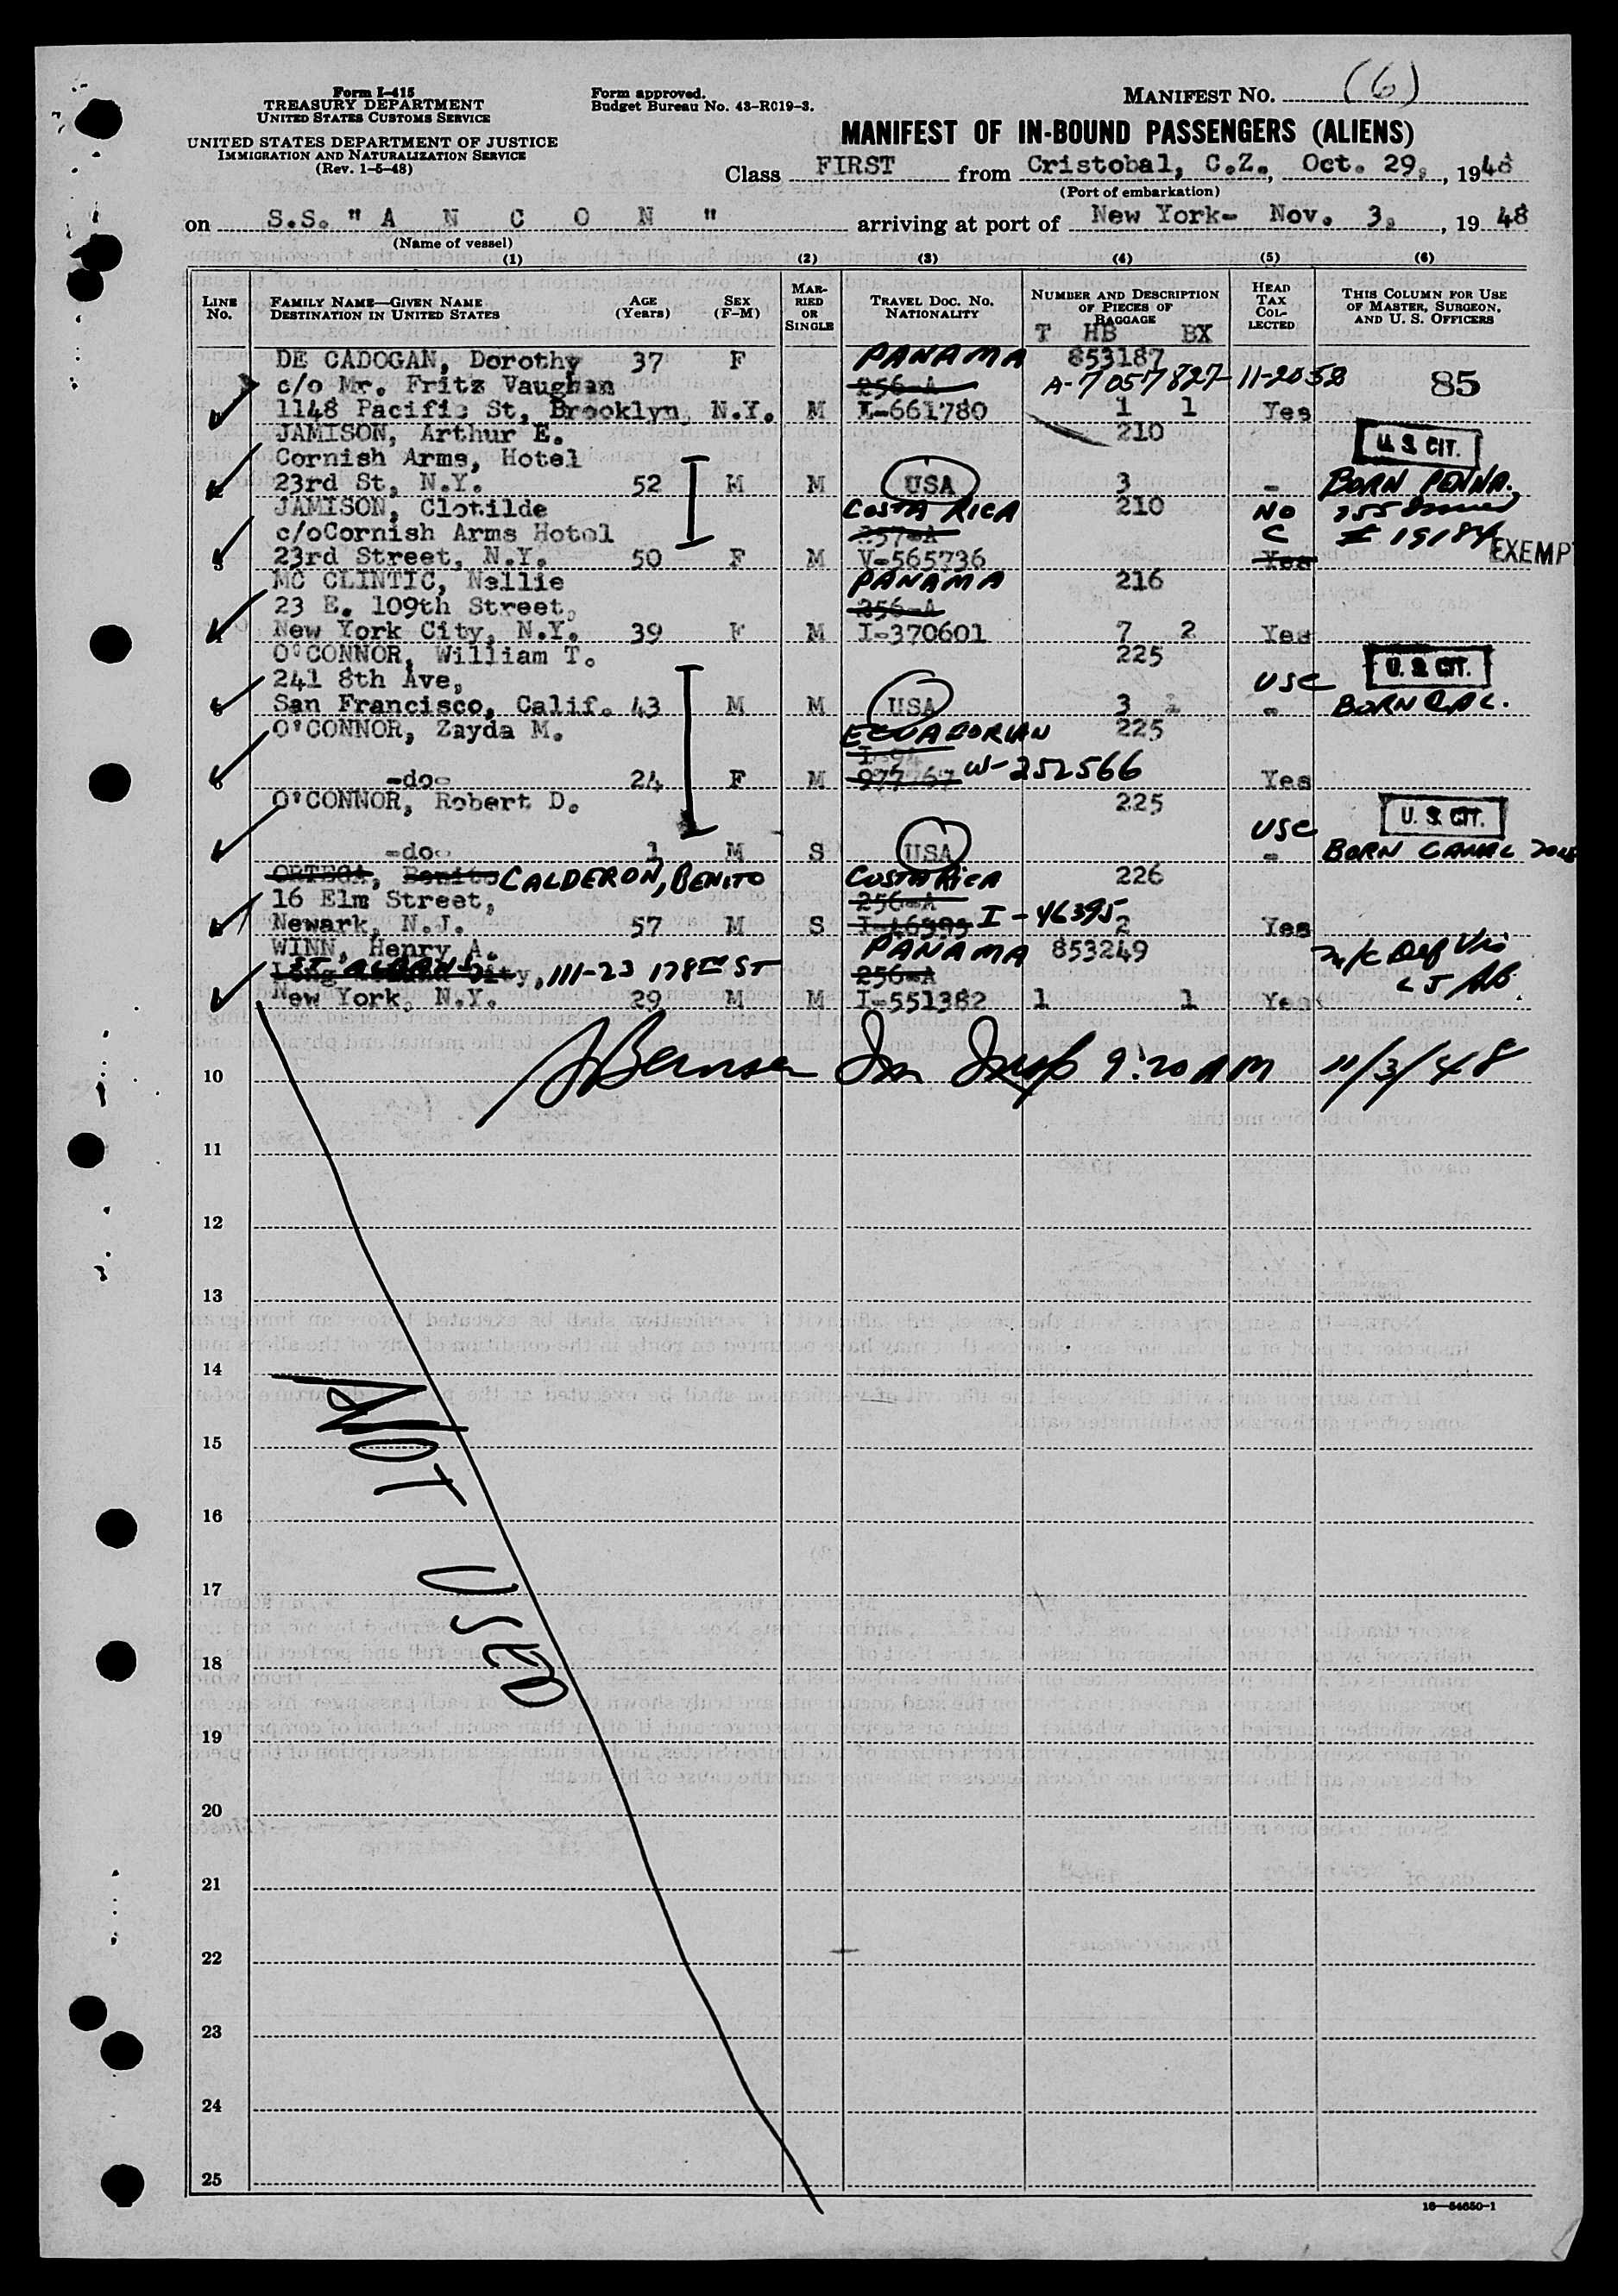 Form I-415
TREASURY DEPARTMENT
UNITED STATES CUSTOMS SERVICE
UNITED STATES DEPARTMENT OF JUSTICE
IMMIGRATION AND NATURALIZATION SERVICE
(Rev. 1-5-48)
Form approved.
Budget Bureau No. 43-R019-3.
MANIFEST NO. (6)
MANIFEST OF IN-BOUND PASSENGERS (ALIENS)
Class FIRST from Cristobal, C.Z., Oct. 29, 1948
(Port of embarkation)
on S.S. "A N C O N" arriving at port of New York- Nov. 3, 1948
(Name of vessel)
(1) (2) (3) (4) (5) (6)
LINE No. FAMILY NAME—GIVEN NAME DESTINATION IN UNITED STATES AGE (Years) SEX (F-M) MARRIED OR SINGLE TRAVEL DOC. NO. NATIONALITY NUMBER AND DESCRIPTION OF PIECES OF BAGGAGE HEAD TAX COLLECTED THIS COLUMN FOR USE OF MASTER, SURGEON, AND U. S. OFFICERS
T HB BX
DE CADOGAN, Dorothy 37 F PANAMA 853187
c/o Mr. Fritz Vaughan 256-A A-7057827-11-2058 85
1148 Pacific St, Brooklyn, N.Y. M I-661780 1 1 Yes
JAMISON, Arthur E. 210 U. S. CIT.
Cornish Arms, Hotel
23rd St, N.Y. 52 M M USA 3 - BORN PENNA.,
JAMISON, Clotilde COSTA RICA 210 NO
c/oCornish Arms Hotel 257-A C
23rd Street, N.Y. 50 F M V-565736 Yes EXEMPT
MC CLINTIC, Nellie PANAMA 216
23 E. 109th Street, 256-A
New York City, N.Y. 39 F M I-370601 7 2 Yes
O'CONNOR, William T. 225 U. S. CIT.
241 8th Ave, USC
San Francisco, Calif. 43 M M USA 3 - BORN CAL.
O'CONNOR, Zayda M. ECUADORIAN 225
I-94
-do- 24 F M 977767 W-252566 Yes
O'CONNOR, Robert D. 225 U. S. CIT.
USC
-do- 1 M S USA - BORN CANAL ZONE
ORTEGA, Benito CALDERON, BENITO COSTA RICA 226
16 Elm Street, 256-A
Newark, N.J. 57 M S I-46395 I-46395 2 Yes
WINN, Henry A. PANAMA 853249
ST ALBANS, 111-23 178TH ST 256-A
New York, N.Y. 29 M M I-551382 1 1 Yes
10 9:20 AM 11/3/48
11
12
13
14
15
16
17
18
19
20
21
22
23
24
25
NOT USED
16—54650-1